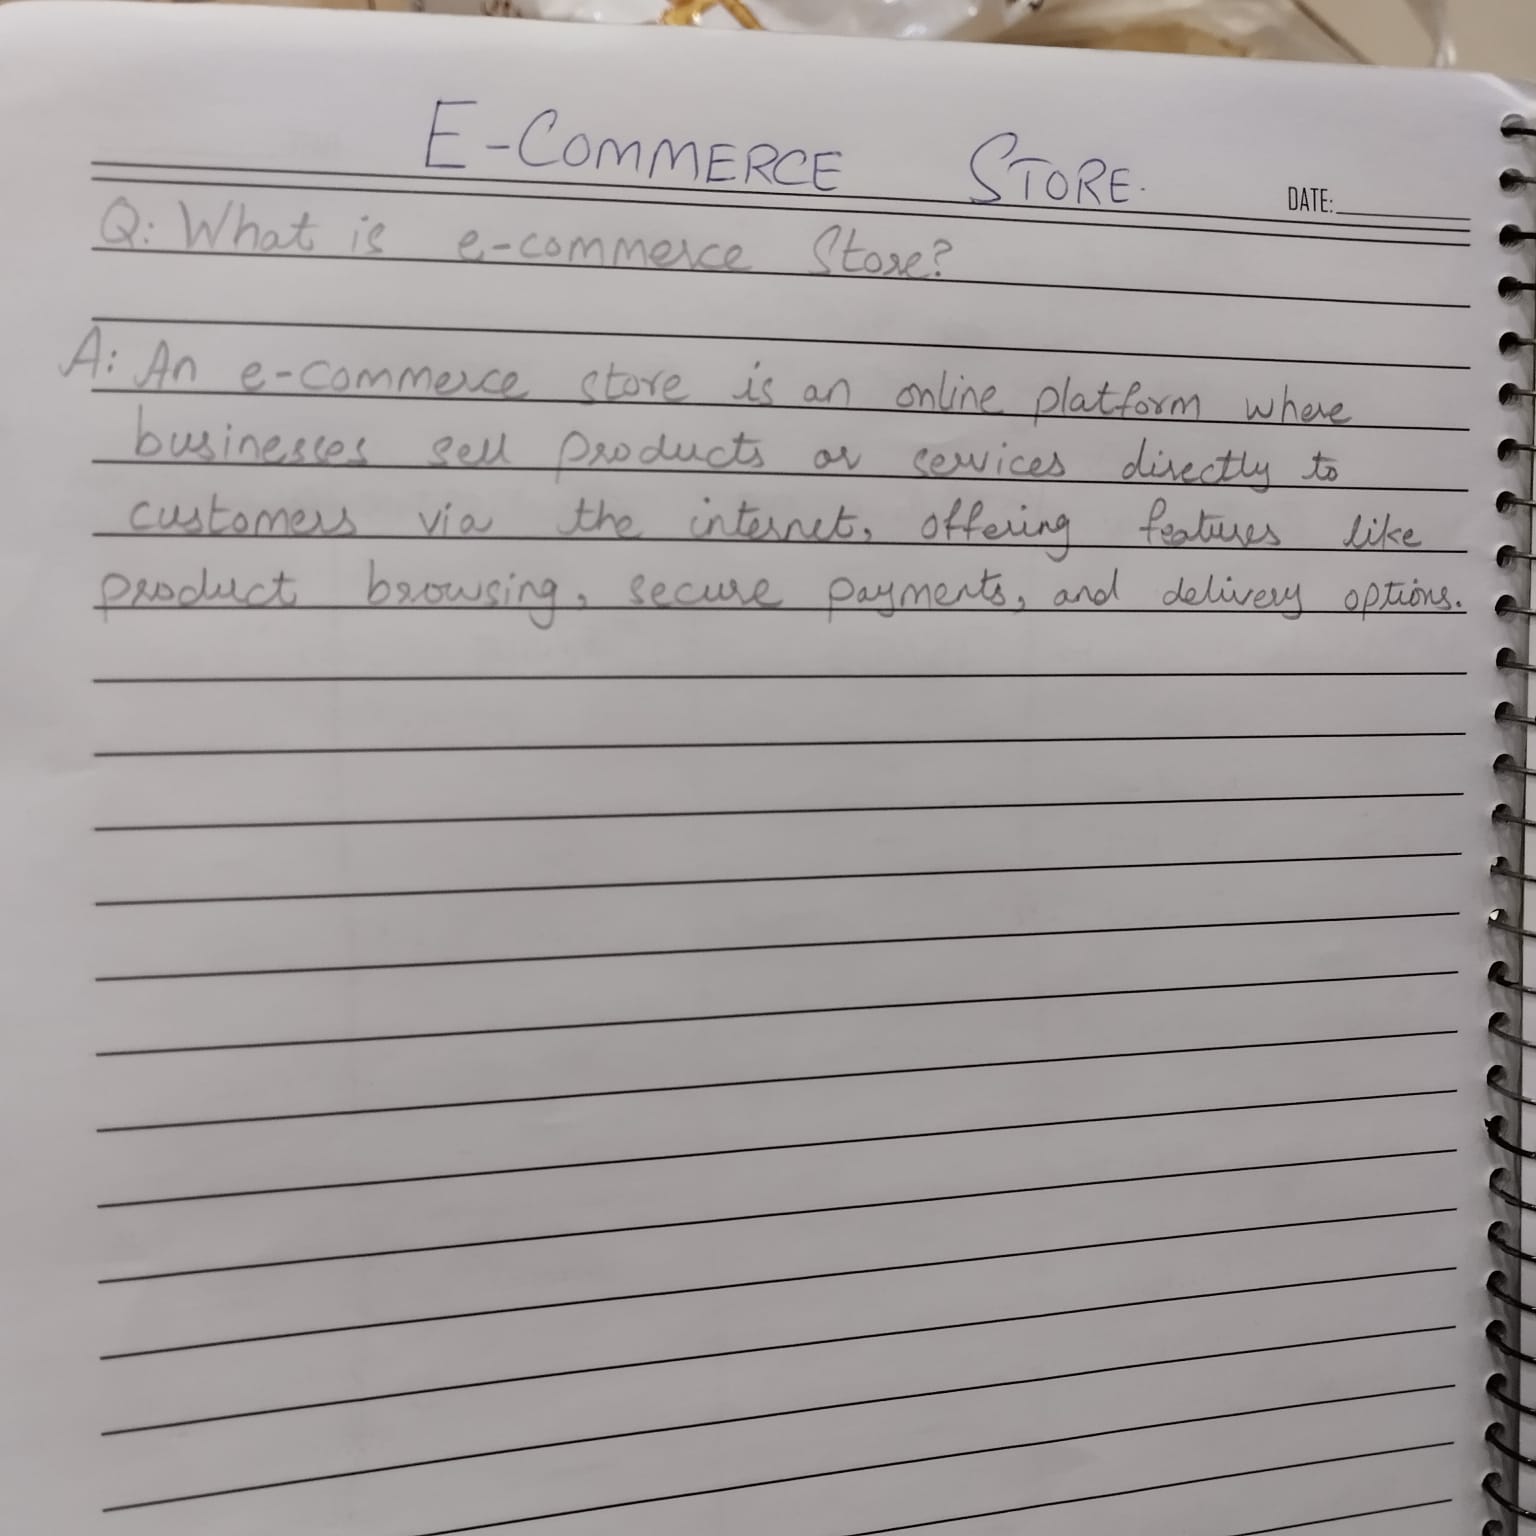 E-COMMERCE STORE.
DATE:
Q: What is e-commerce Store?
A: An e-commerce store is an online platform where
businesses sell products or services directly to
customers via the internet, offering features like
product browsing, secure payments, and delivery options.